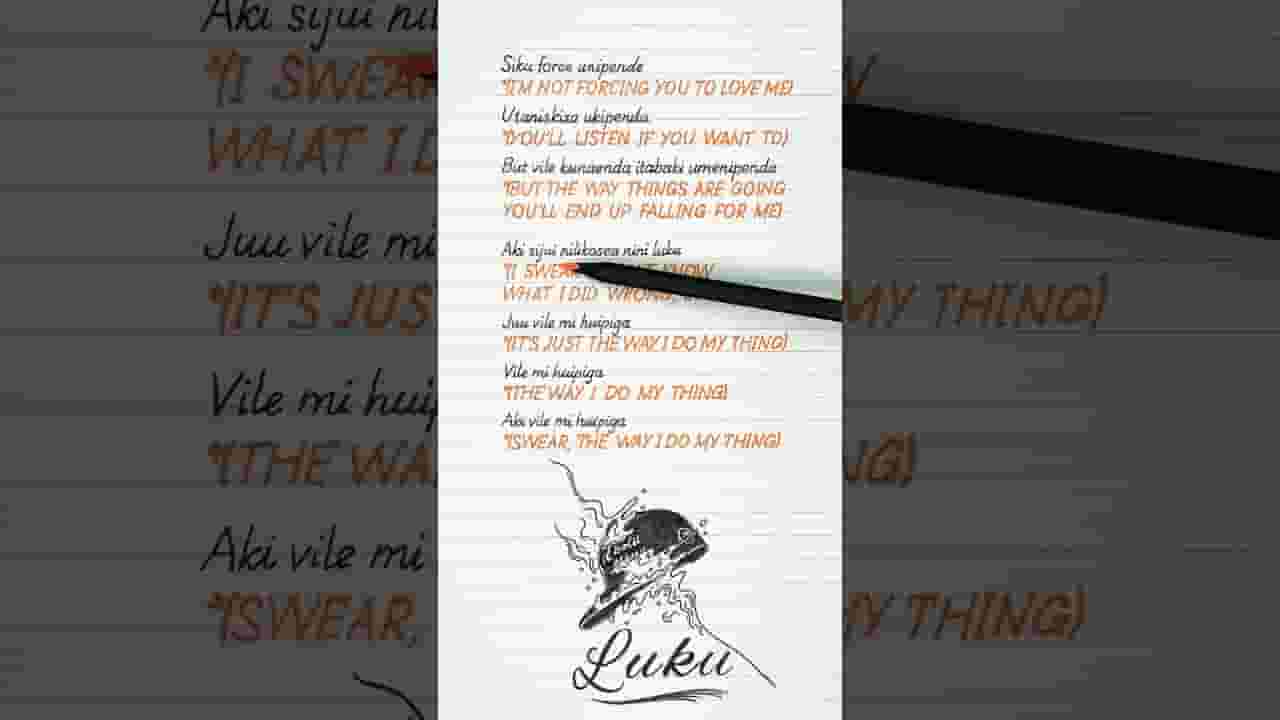 Siku force unipende
"(I'M NOT FORCING YOU TO LOVE ME)
Utaniskiza ukipenda
"(YOU'LL LISTEN IF YOU WANT TO)
But vile kunaenda itabaki umenipenda
"(BUT THE WAY THINGS ARE GOING
YOU'LL END UP FALLING FOR ME)
Aki sijui nilikosea nini luku
"(I SWEAR KNOW
WHAT I DID WRONG,
Juu vile mi huipiga
"(IT'S JUST THE WAY I DO MY THING)
Vile mi huipiga
"(THE WAY I DO MY THING)
Aki vile mi huipiga
"(SWEAR, THE WAY I DO MY THING)
Luku